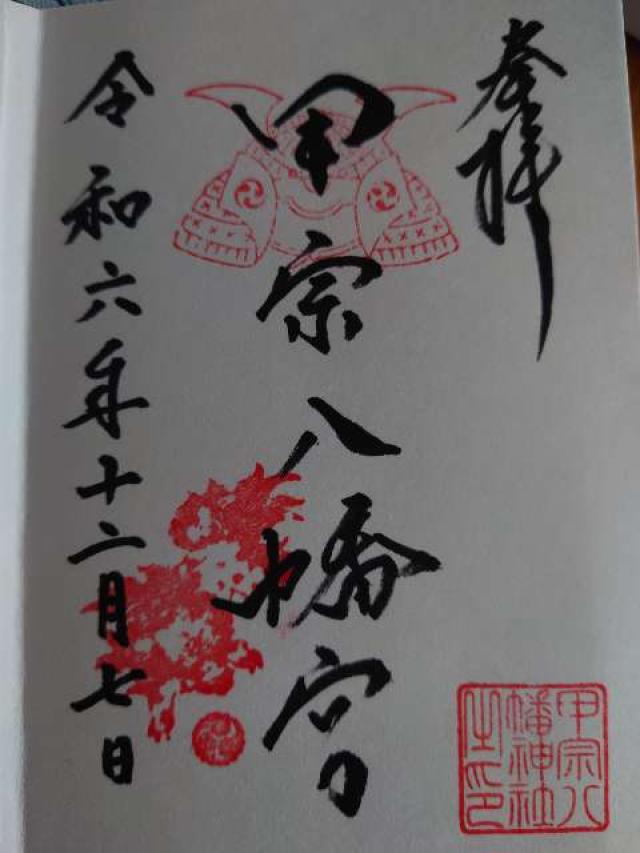 奉拝
甲宗八幡宮
令和六年十二月七日
甲宗八
幡神社
之印